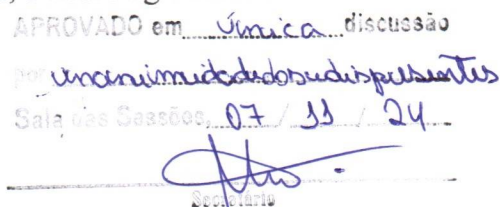 APROVADO em única discussão
por unanimidade dos edis presentes
Sala das Sessões, 07 / 11 / 24
Secretário